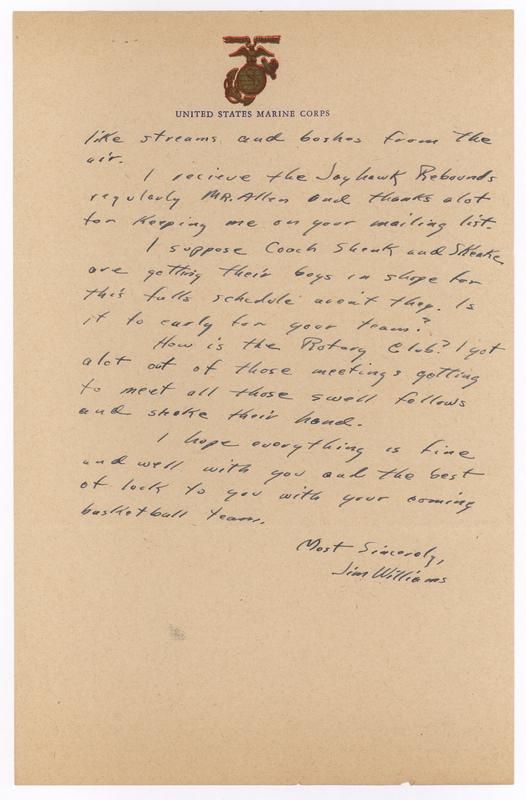 UNITED STATES MARINE CORPS
like streams and bashes from the
air.
I recieve the Jayhawk Rebounds
regularly MR. Allen and thanks alot
for keeping me on your mailing list.
I suppose Coach Shenk and
are getting their boys in shape for
this falls schedule aren't they. Is
it to early for your team?
How is the Rotary Club? I got
alot out of those meetings getting
to meet all those swell fellows
and shake their hand.
I hope everything is fine
and well with you and the best
of luck to you with your coming
basketball team.
Most Sincerely,
Jim Williams